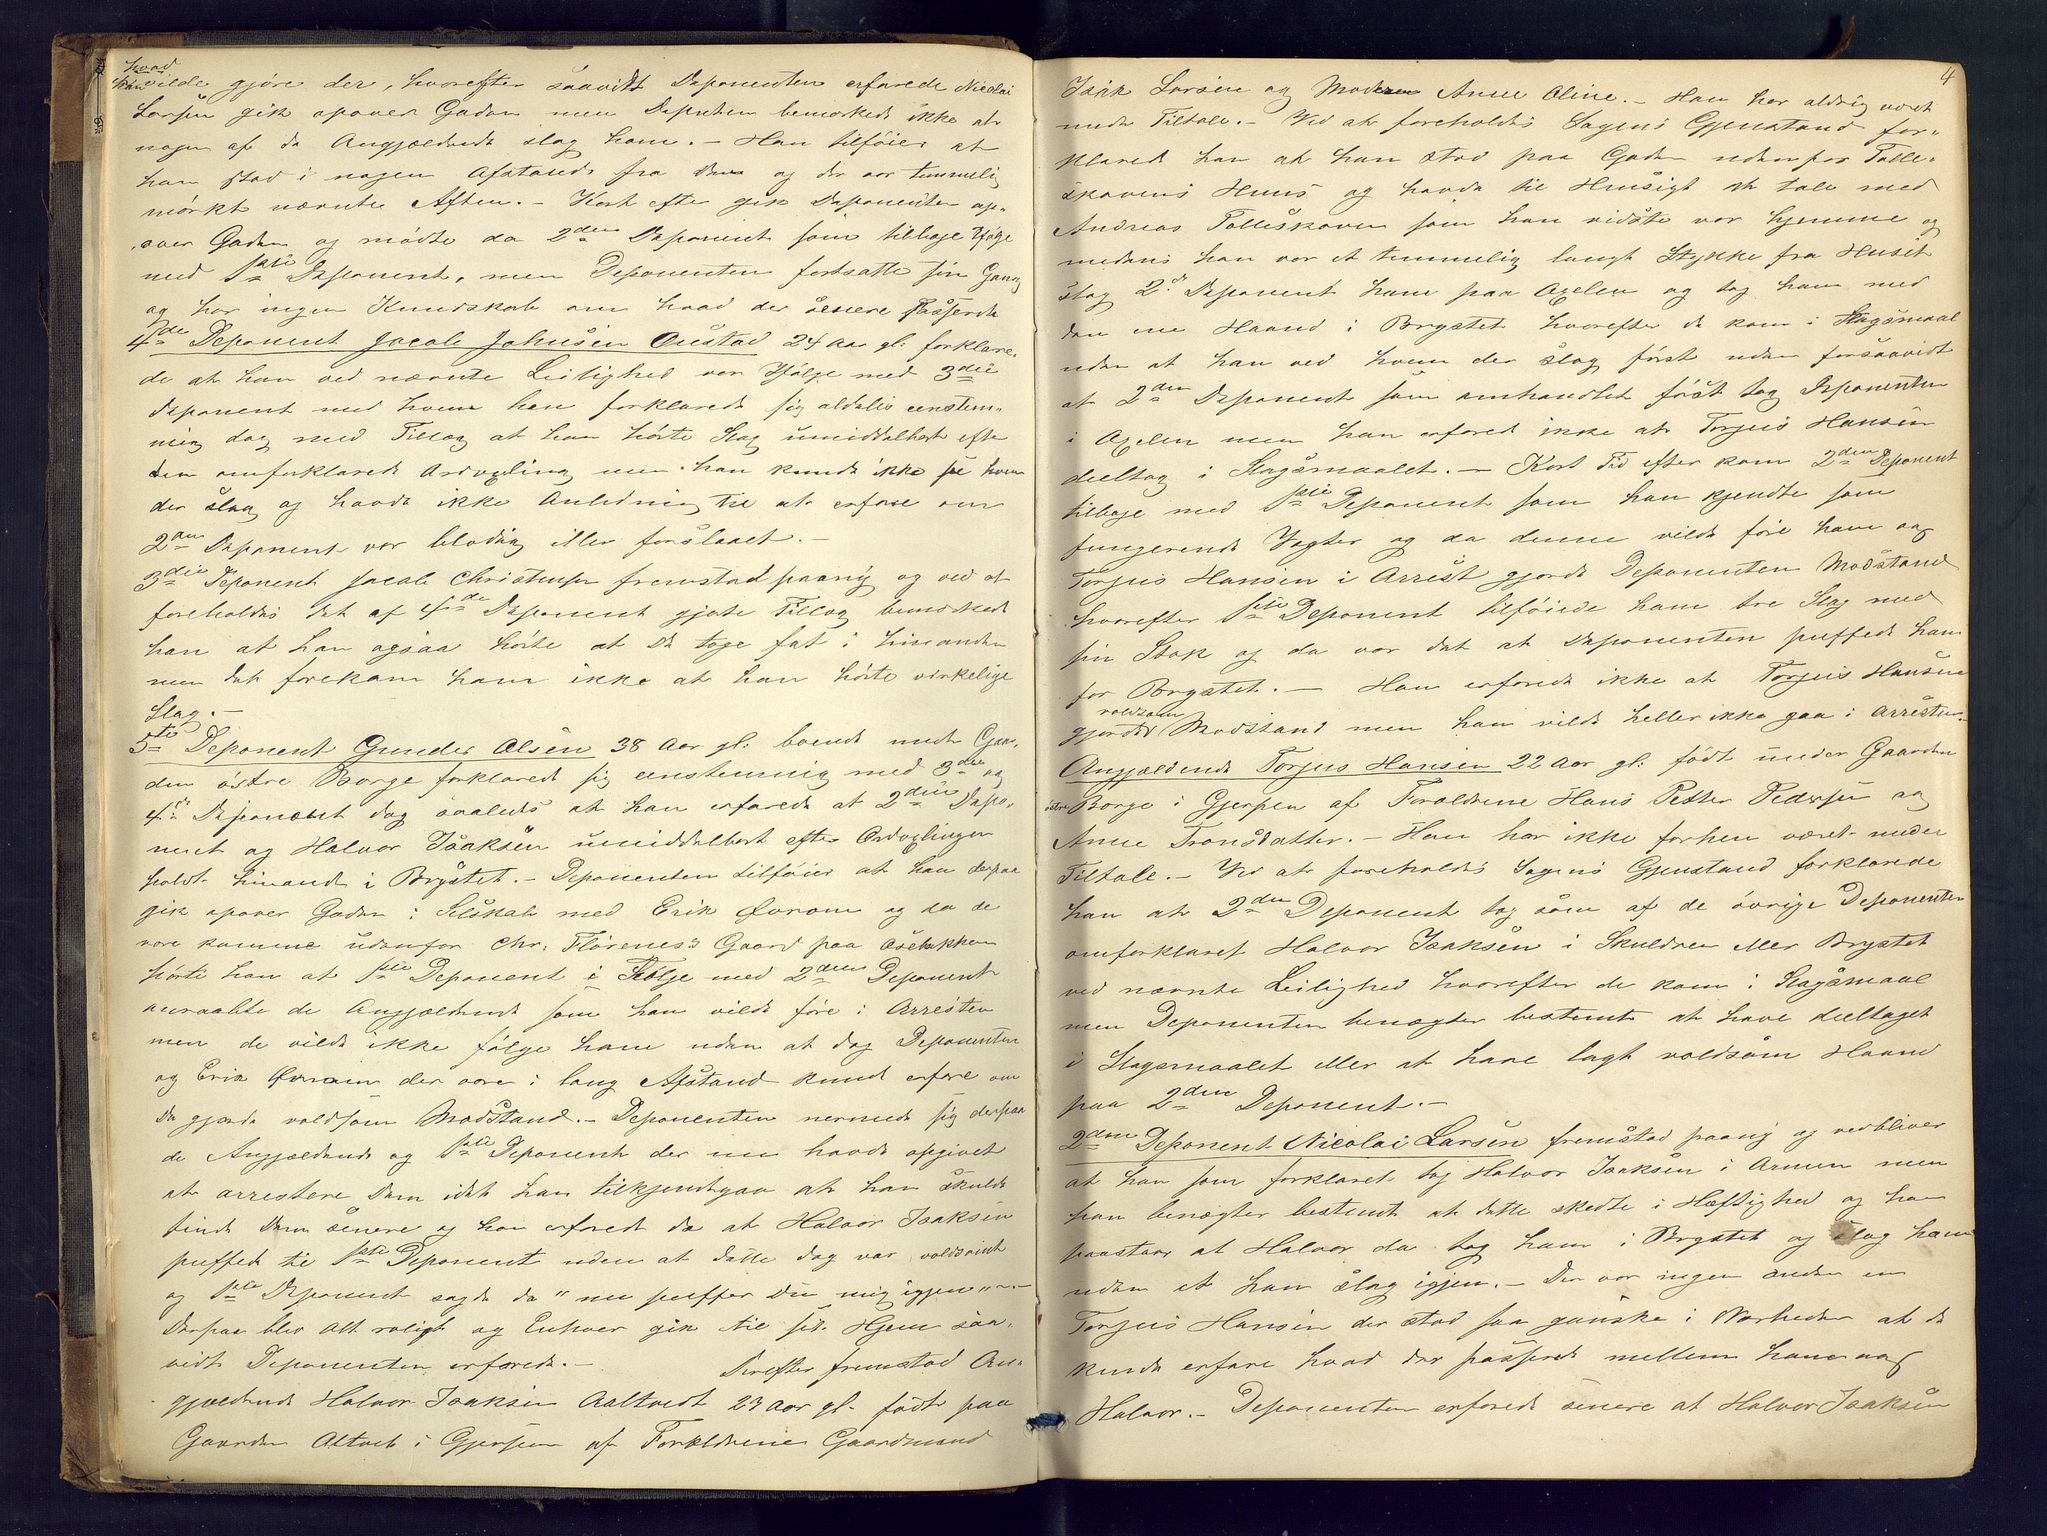 hvad
han vilde gjøre der, hvorefter saavidt Deponenten erfarede Nicolai
Larsen gik opover Gaden men Deponenten bemærkede ikke at
nogen af de Angjældende slog ham. – Han tilføier at
han stod i nogen Afstand fra dem og der var temmelig
mørkt nævnte Aften. – Kort efter gik Deponenten op-
over Gaden og mødte da 2den Deponent som tilbage ifølge
med 1ste Deponent, men Deponenten fortsatte sin Gang
og har ingen Kundskab om hvad der senere passerede
4de Deponent Jacob Johnsen Oustad 24 Aar gl: forklare-
de at han ved nævnte Leilighed var ifølge med 3die
Deponent med hvem han forklarede sig aldeles eenstem-
mig dog med Tillæg at han hørte Slag umiddelbart efter
den omforklarede Ordvexling men han kunde ikke se hvem
der slog og havde ikke Anledning til at erfare om
2den Deponent var blodig eller forslaaet. –
3die Deponent Jacob Christensen fremstod paany og ved at
foreholdes det af 4de Deponent gjorte Tillæg bemærkede
han at han ogsaa hørte at De toge fat i hinanden
men det forekom ham ikke at han hørte virkelige
Slag. –
5te Deponent Gunder Olsen 38 Aar gl: boende under Gaar-
den østre Borge forklarede sig eenstemmig med 3die og
4de Deponent dog saaledes at han erfarede at 2den Depo-
nent og Halvor Isaksen umiddelbart efter Ordvexlingen
holdt hinanden i Brystet. – Deponenten tilføier at han derpaa
gik opover Gaden i Selskab med Erik Øvrom og da de
vare komne udenfor Chr: Flørenes's Gaard paa
hørte han at 1ste Deponent i Følge med 2den Deponent
anraabte de Angjældende som han vilde føre i Arresten
men de vilde ikke følge ham uden at dog Deponenten
og Erik Øvrom der vare i lang Afstand kunde erfare om
De gjorde voldsom Modstand. – Deponenten nermede sig derpaa
de Angjældende og 1ste Deponent der nu havde opgivet
at arrestere Dem idet han tilkjendegav at han skulde
finde Dem senere og han erfarede da at Halvor Isaksen
puffede til 1ste Deponent uden at dette dog var voldsomt
og 1ste Deponent sagde da "nu puffer Du mig igjen" –
Derpaa blev Alt roligt og Enhver gik til sit Hjem saa-
vidt Deponenten erfarede. – Derefter fremstod An-
gjældende Halvor Isaksen Aaltvedt 23 Aar gl. født paa
Gaarden Altvet i Gjerpen af Forældrene Gaardmand
4
Isak Larsen og Moderen Anne Oline. – Han har aldrig været
under Tiltale. – Ved at foreholdes Sagens Gjenstand for-
klarede han at han stod paa Gaden udenfor Tolle-
skovens Huus og havde til Hensigt at tale med
Andreas Tolleskoven som han vidste var hjemme og
medens han var et temmelig langt Stykke fra Huset
slog 2den Deponent ham paa Axelen og tog ham med
den ene Haand i Brystet hvorefter de kom i Slagsmaal
uden at han ved hvem der slog først uden forsaavidt
at 2den Deponent som omhandlet først tog Deponenten
i Axelen men han erfared ikke at Torjus Hansen
deeltog i Slagsmaalet. – Kort Tid efter kom 2den Deponent
tilbage med 1ste Deponent som han kjendte som
fungerende Vegter og da denne vilde føre ham og
Torjus Hansen i Arrest gjorde Deponenten Modstand
hvorefter 1ste Deponent tilføiede ham tre Slag med
sin Stok og da var det at Deponenten puffede ham
for Brystet. – Han erfarede ikke at Torjus Hansen
voldsom
gjorde Modstand men han vilde heller ikke gaa i Arresten.
Angjældende Torjus Hansen 22 Aar gl: født under Gaarden
østre Borge i Gjerpen af Forældrene Hans Petter Pedersen og
Anne Tronsdatter. – Han har ikke forhen været under
Tiltale. – Ved at foreholdes Sagens Gjenstand forklarede
han at 2den Deponent tog som af de øvrige Deponenter
omforklaret Halvor Isaksen i Skuldren eller Brystet
ved nævnte Leilighed hvorefter de kom i Slagsmaal
men Deponenten benægter bestemt at have deeltaget
i Slagsmaalet eller at have lagt voldsom Haand
paa 2den Deponent. –
2den Deponent Nicolai Larsen fremstod paany og vedbliver
at han som forklaret tog Halvor Isaksen i Armen men
han benægter bestemt at dette skedte i Hæftighed og han
paastaar at Halvor da tog ham i Brystet og slog ham
uden at han slog igjen. – Der var ingen anden en
Torjus Hansen der stod saa ganske i Nærheden at de
kunde erfare hvad der passerede mellem ham og
Halvor. – Deponenten erfarede senere at Halvor Isaksen